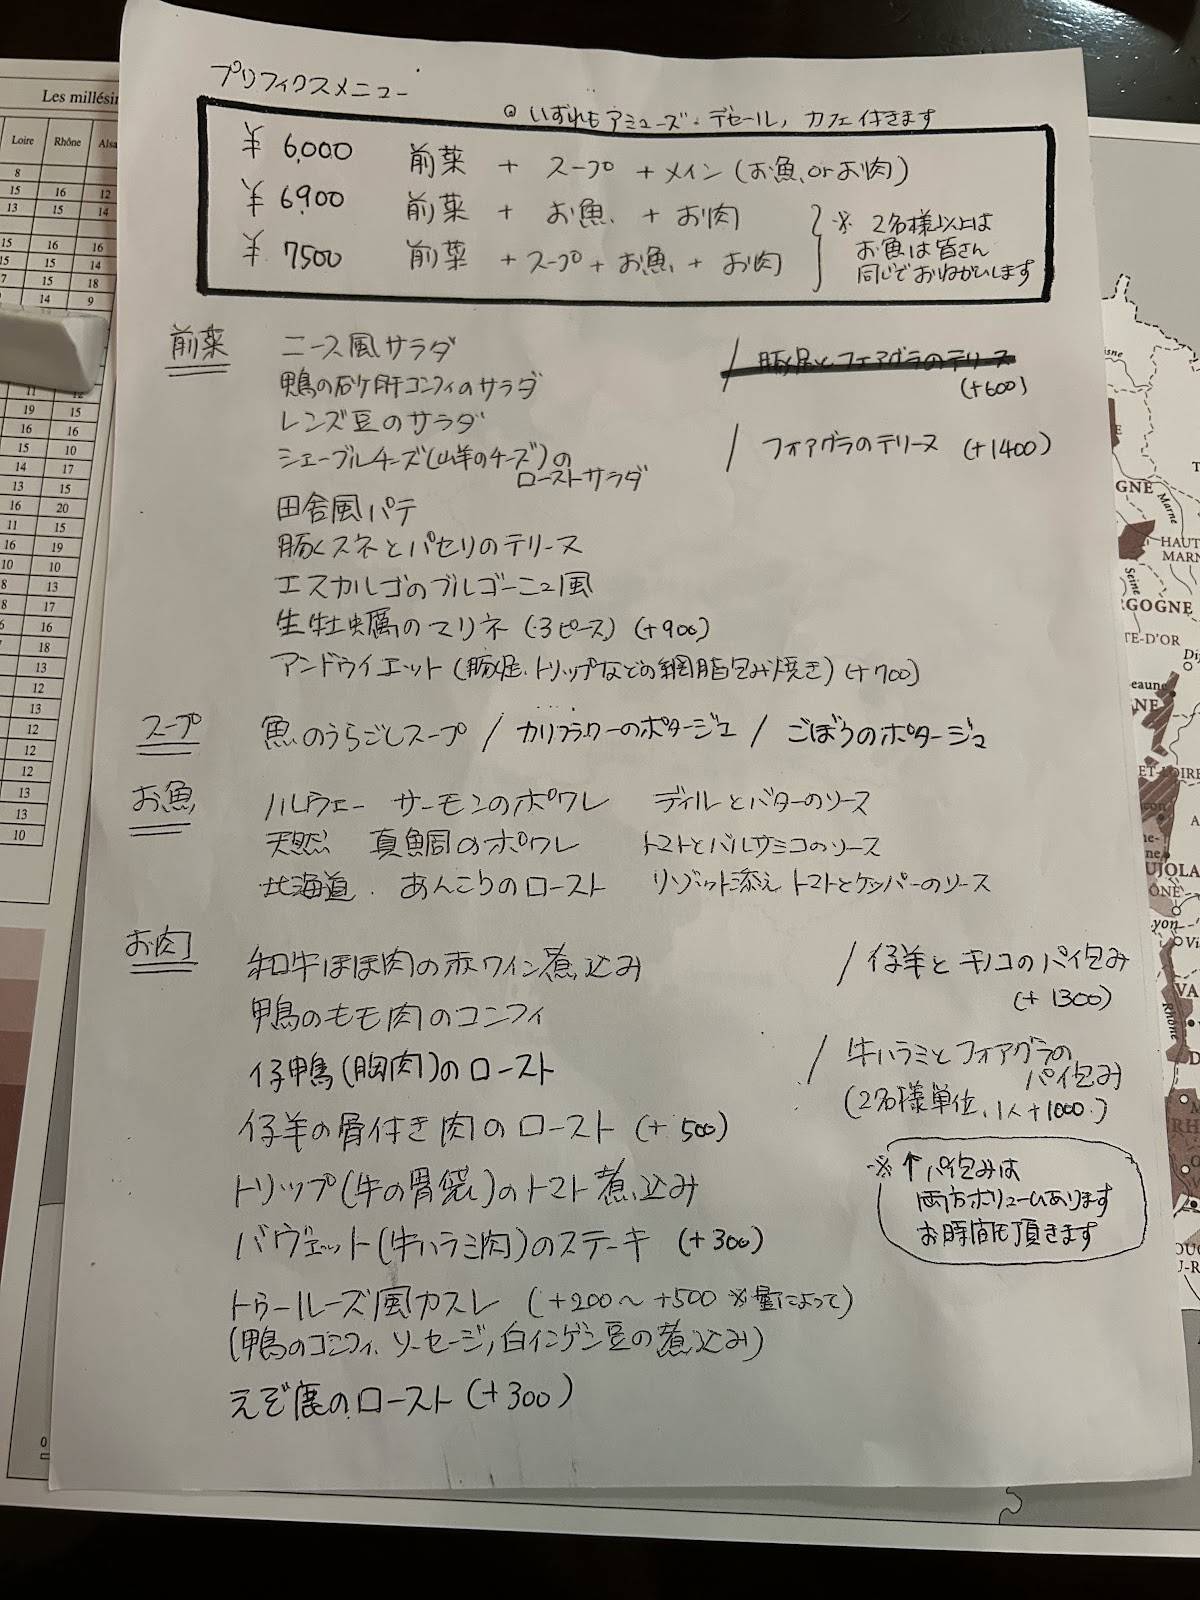 プリフィクスメニュー
◎ いずれもアミューズ・デセール, カフェ付きます
¥ 6,000 前菜 + スープ + メイン (お魚 or お肉)
¥ 6,900 前菜 + お魚 + お肉
¥ 7500 前菜 + スープ + お魚 + お肉
※ 2名様以上は
お魚は皆さん
同じでおねがいします
前菜 ニース風サラダ
鴨の砂肝コンフィのサラダ
レンズ豆のサラダ
シェーブルチーズ(山羊のチーズ)の
ローストサラダ
田舎風パテ
豚スネとパセリのテリーヌ
エスカルゴのブルゴーニュ風
生牡蠣のマリネ (3ピース) (+900)
アンドゥイエット (豚足、トリップなどの網脂包み焼き) (+700)
/ 豚足とフォアグラのテリーヌ
(+600)
/ フォアグラのテリーヌ (+1400)
スープ 魚のうらごしスープ / カリフラワーのポタージュ / ごぼうのポタージュ
お魚 ノルウェー サーモンのポワレ ディルとバターのソース
天然 真鯛のポワレ トマトとバルサミコのソース
北海道 あんこうのロースト リゾット添え トマトとケッパーのソース
お肉 和牛ほほ肉の赤ワイン煮込み
鴨のもも肉のコンフィ
仔鴨(胸肉)のロースト
仔羊の骨付き肉のロースト (+500)
トリップ(牛の胃袋)のトマト煮込み
バヴェット(牛ハラミ肉)のステーキ (+300)
トゥールーズ風カスレ (+200〜+500 ※量によって)
(鴨のコンフィ、ソーセージ, 白インゲン豆の煮込み)
えぞ鹿のロースト (+300)
/ 仔羊とキノコのパイ包み
(+1300)
/ 牛ハラミとフォアグラの
パイ包み
(2名様単位、1人+1000)
※ ↑ パイ包みは
両方ボリュームあります
お時間頂きます
Les millési
Loire Rhône Alsa
8
15 16 12
13 15 14
15 16 16
15 15 14
7 15 18
14 9
11 12
19 15
16 16
15 10
14 17
13 15
16 20
11 15
16 19
10 10
8 13
8 17
6 16
7 18
13
12
13
12
12
13
13
10
0
Marne
HAUT
MARN
Seine
TE-D'OR
Beaune
Rhône